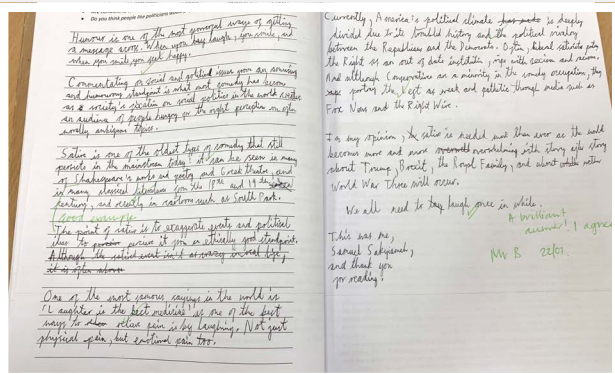 Do you think people like politicians
Humour is one of the most powerful ways of getting
a message across. When you laugh, you smile, and
when you smile you feel happy.
Commentating on social and political issues from an amusing
and humourous standpoint is what most comedy has become
as society's fixation on social politics in the world
an audience of people hungry for the right perception on often
morally ambiguous topics.
Satire is one of the oldest types of comedy that still
persists in the mainstream today. It can be seen in many
of Shakespeare's works and poetry and Greek theatre, and
in many classical literature from the 18th and 19th
century, and recently in cartoons such as South Park.
Good example
The point of satire is to exaggerate events and political
ideas to
Although the satirised event isn't as crazy in real life,
it is often
One of the most famous sayings in the world is
'Laughter is the best medicine' as one of the best
ways to relieve pain is by laughing. Not just
physical pain, but emotional pain too.
Currently, America's political climate is deeply
divided due to its troubled history and the political rivalry
between the Republicans and the Democrats. Often, liberal satirists
the Right as an out of date institute, rife with sexism and racism.
And although Conservatives are a minority in the comedy occupation, they
portray the Left as weak and pathetic through media such as
Fox News and the Right Wire.
For my opinion, satire is needed more than ever as the world
becomes more and more overwhelming with story after story
about Trump, Brexit, the Royal Family, and about
World War Three will occur.
We all need to laugh once in while.
A brilliant
answer! I agree
This was me,
Samuel
and thank you
for reading!
Mr B 22/01